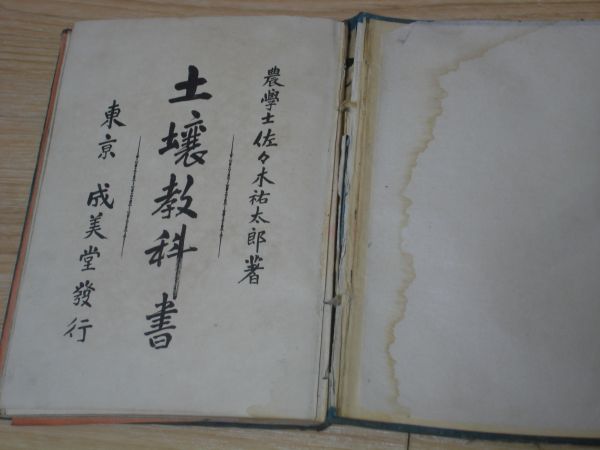 農學士佐々木祐太郎著
土壤教科書
東京 成美堂發行